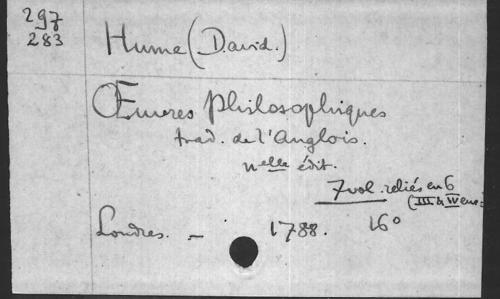 297
283
Hume (David.)
Œuvres Philosophiques
trad. de l'Anglois.
nelle édit.
7 vol. reliés en 6
(III & IV ens
Londres. – 1788. 16°